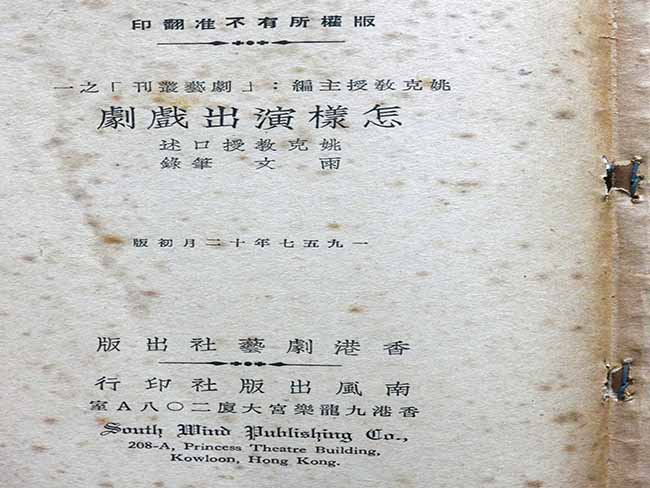 版權所有不准翻印
姚克敎授主編：「劇藝叢刊」之一
怎樣演出戲劇
姚克敎授口述
雨文筆錄
一九五七年十二月初版
香港劇藝社出版
南風出版社印行
香港九龍樂宮大廈二〇八A室
South Wind Publishing Co.,
208-A, Princess Theatre Building,
Kowloon, Hong Kong.